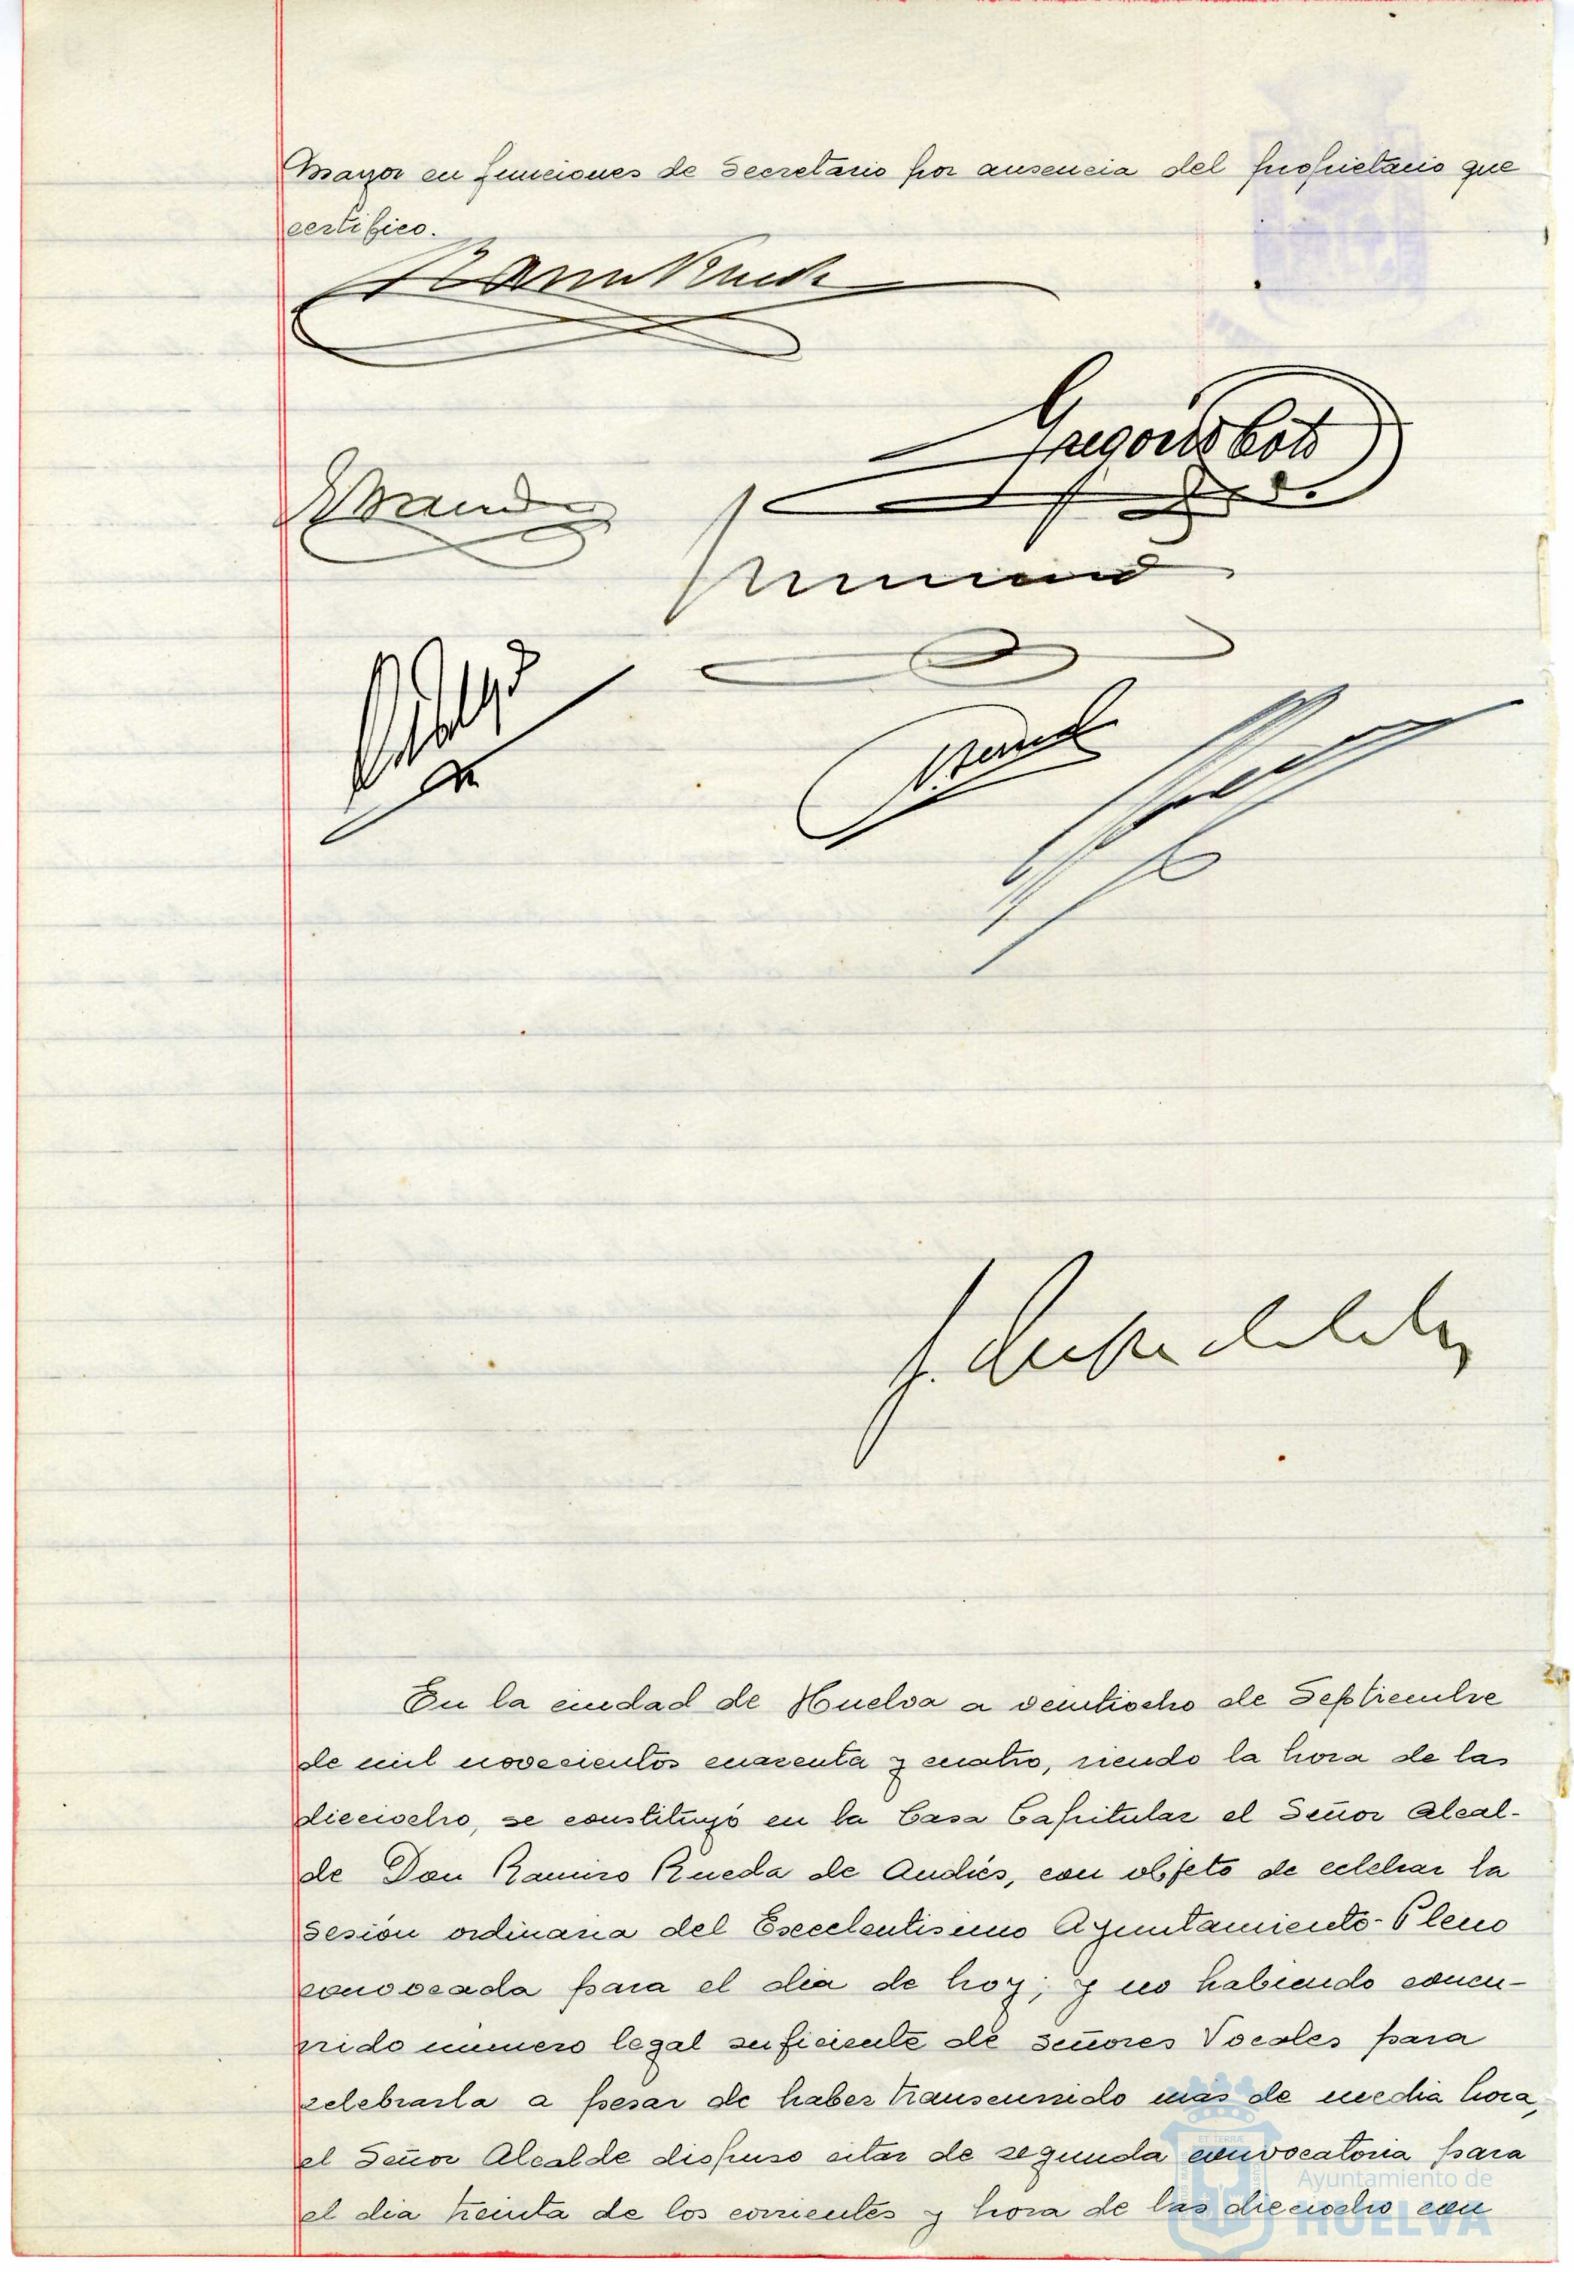 Mayor en funciones de Secretario por ausencia del propietario que
certifico.
Gregorio Coto
En la ciudad de Huelva a veintiocho de Septiembre
de mil novecientos cuarenta y cuatro, siendo la hora de las
dieciocho, se constituyó en la Casa Capitular el Señor Alcal-
de Don Ramiro Rueda de Andrés, con objeto de celebrar la
sesión ordinaria del Excelentisimo Ayuntamiento-Pleno
convocada para el dia de hoy; y no habiendo concu-
rrido número legal suficiente de señores Vocales para
celebrarla a pesar de haber transcurrido más de media hora,
el Señor Alcalde dispuso citar de segunda convocatoria para
el dia treinta de los corrientes y hora de las dieciocho con
Ayuntamiento de
HUELVA